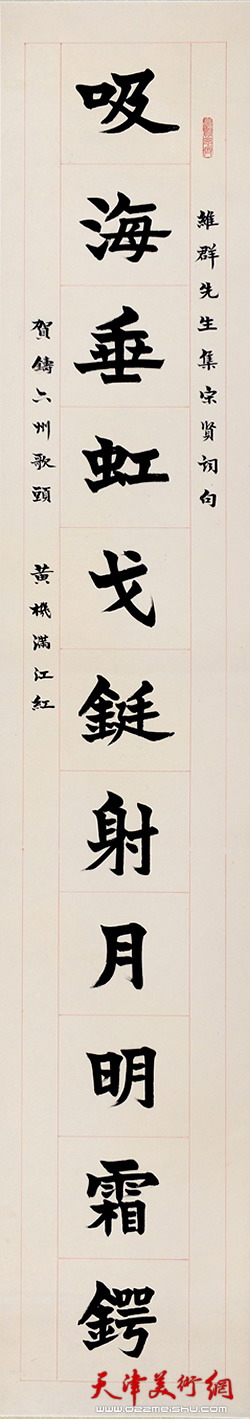 維群先生集宗贤词句
吸海垂虹戈鋋射月明霜鍔
賀鑄六州歌頭 黄機滿江紅
天津美術網
www.022meishu.com